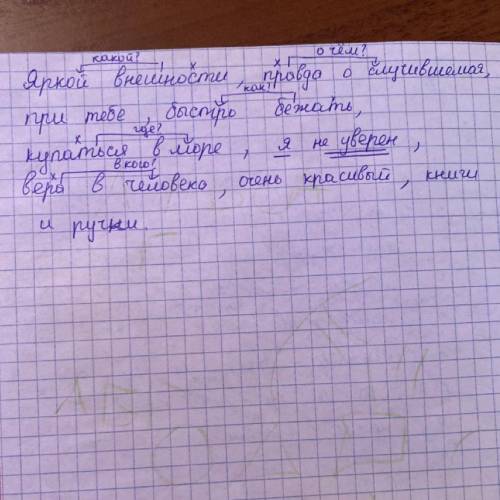 какой? о чём?
Яркой внешности, правда о случившемся,
как?
при тебе, быстро бежать,
где?
купаться в море, я не уверен,
в кого?
верь в человека, очень красивый, книги
и ручки.